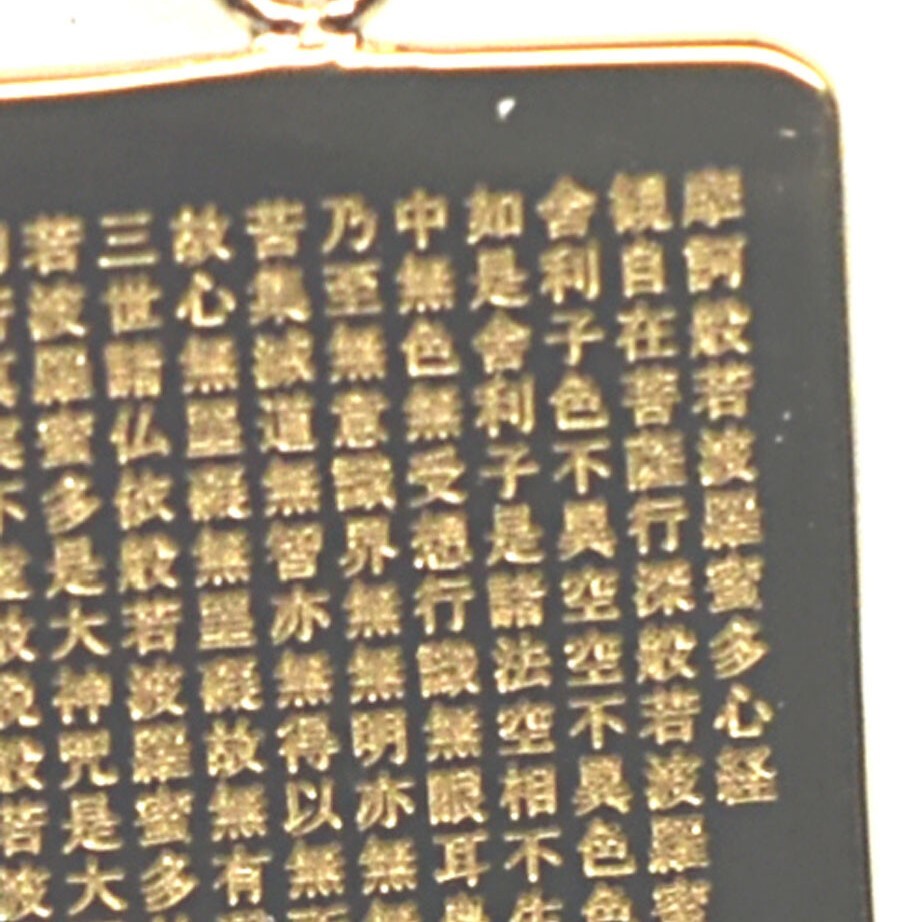 摩訶般若波羅蜜多心経
観自在菩薩行深般若波羅蜜
舎利子色不異空空不異色色
如是舎利子是諸法空相不生
中無色無受想行識無眼耳
乃至無意識界無無明亦無無
苦集滅道無智亦無得以無
故心無罣礙無罣礙故無有
三世諸仏依般若波羅蜜多
若波羅蜜多是大神咒是大